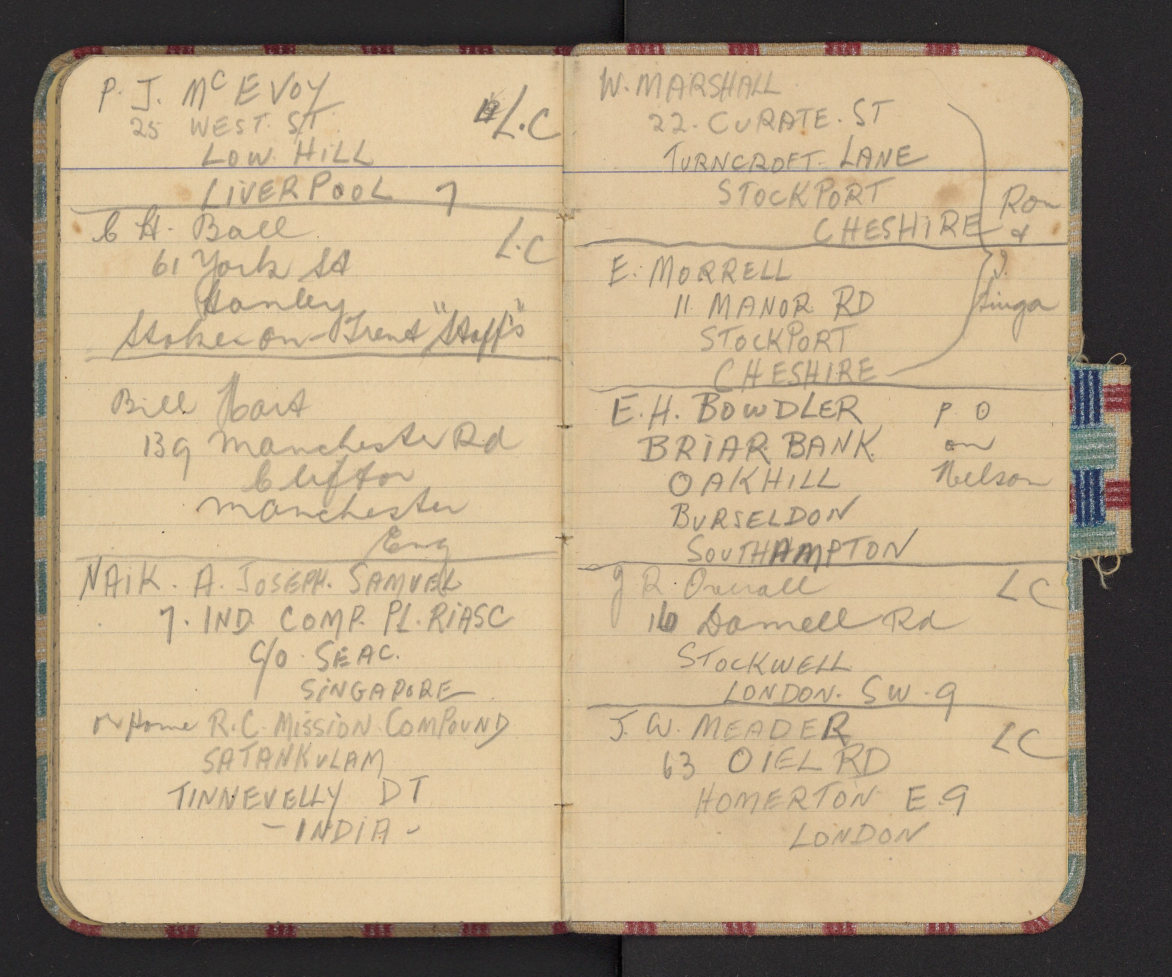 P. J. McEVOY
25 WEST. ST. L.C
LOW. HILL
LIVERPOOL 7
C H. Ball L.C
61 York St
Hanley
Stoke on-Trent "Staff's"
Bill Hart
139 Manchester Rd
Clifton
Manchester
Eng
NAIK. A. JOSEPH. SAMUEL
7. IND COMP. PL. RIASC
C/O SEAC.
SINGAPORE
or Home R.C. MISSION COMPOUND
SATANKULAM
TINNEVELLY DT
- INDIA -
W. MARSHALL
22. CURATE. ST
TURNCROFT. LANE
STOCKPORT
CHESHIRE
Ron
&
J.
Singa
E. MORRELL
11 MANOR RD
STOCKPORT
CHESHIRE
E. H. BOWDLER P O
BRIAR BANK on
OAKHILL Nelson
BURSELDON
SOUTHAMPTON
J R Overall L C
16 Darnell Rd
STOCKWELL
LONDON. SW. 9
J. W. MEADER L C
63 OIEL RD
HOMERTON E. 9
LONDON